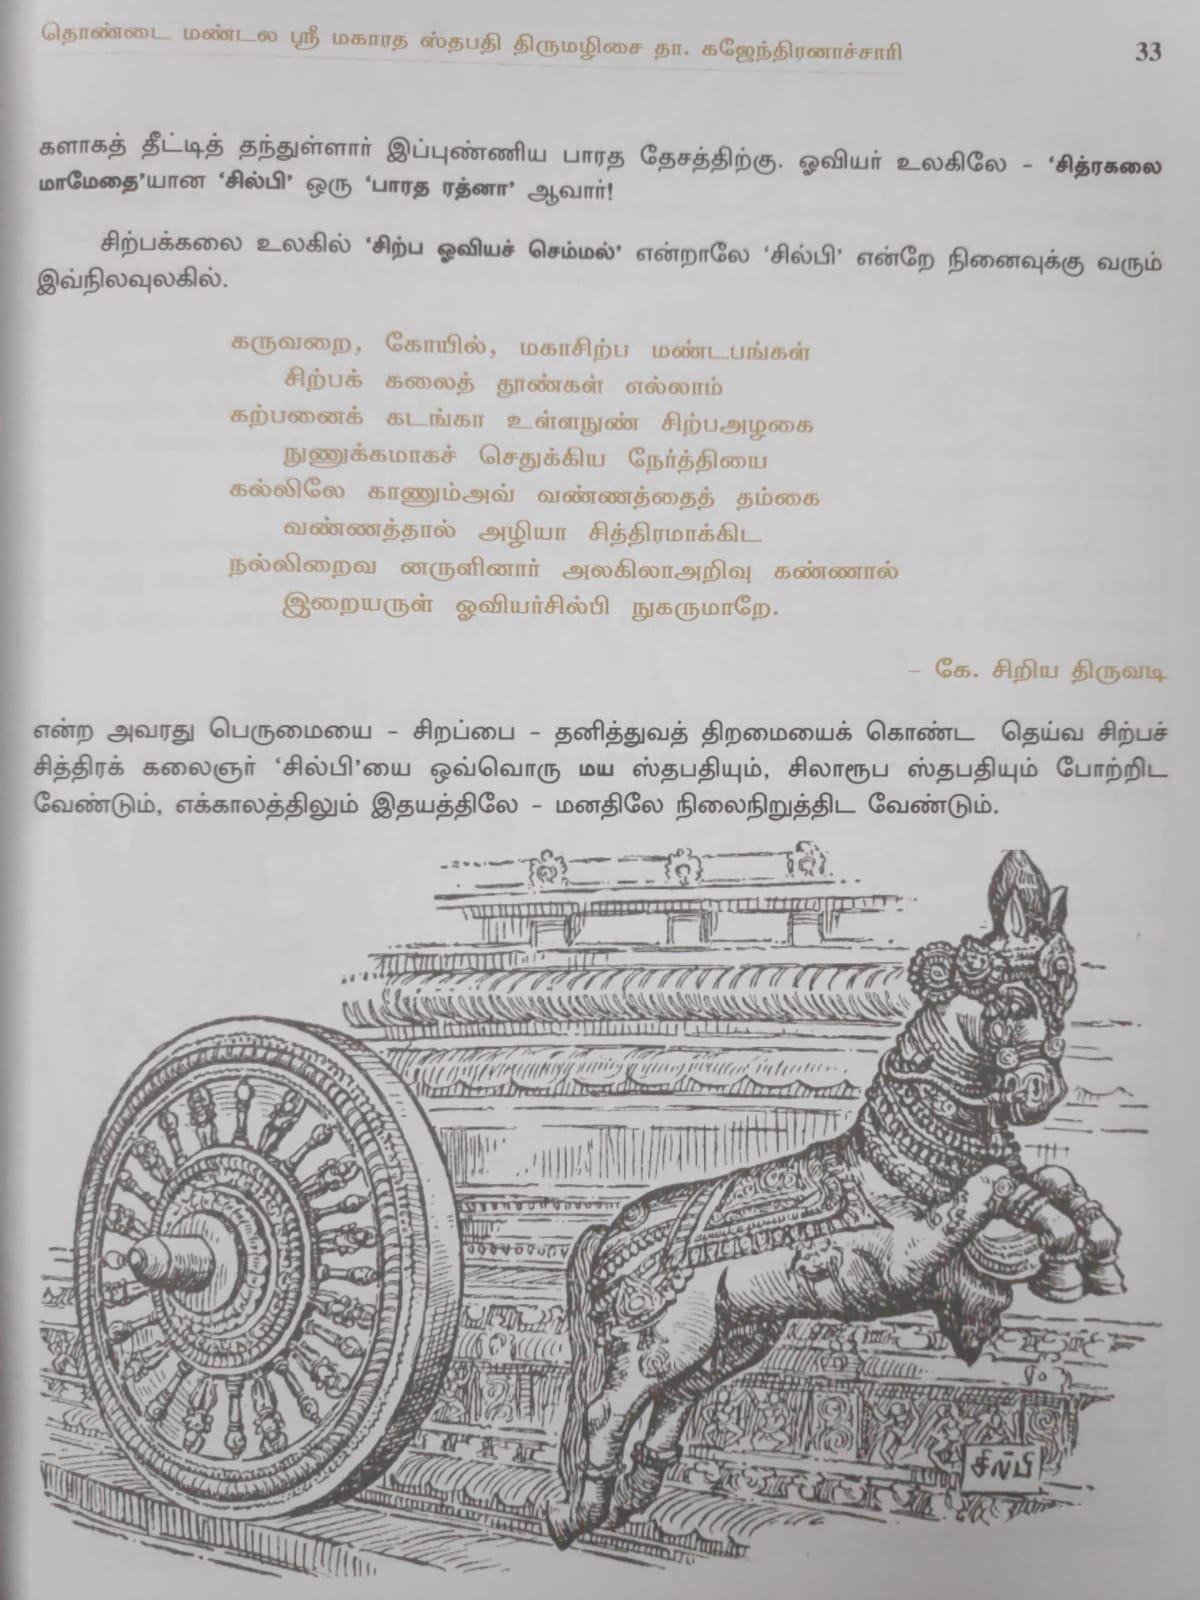 தொண்டை மண்டல ஸ்ரீ மகாரத ஸ்தபதி திருமழிசை தா. கஜேந்திரனாச்சாரி
33
களாகத் தீட்டித் தந்துள்ளார் இப்புண்ணிய பாரத தேசத்திற்கு. ஓவியர் உலகிலே - 'சித்ரகலை
மாமேதை'யான 'சில்பி' ஒரு 'பாரத ரத்னா' ஆவார்!
சிற்பக்கலை உலகில் 'சிற்ப ஓவியச் செம்மல்' என்றாலே 'சில்பி' என்றே நினைவுக்கு வரும்
இவ்நிலவுலகில்.
கருவறை, கோயில், மகாசிற்ப மண்டபங்கள்
சிற்பக் கலைத் தூண்கள் எல்லாம்
கற்பனைக் கடங்கா உள்ளநுண் சிற்பஅழகை
நுணுக்கமாகச் செதுக்கிய நேர்த்தியை
கல்லிலே காணும்அவ் வண்ணத்தைத் தம்கை
வண்ணத்தால் அழியா சித்திரமாக்கிட
நல்லிறைவ னருளினார் அலகிலாஅறிவு கண்ணால்
இறையருள் ஓவியர்சில்பி நுகருமாறே.
- கே. சிறிய திருவடி
என்ற அவரது பெருமையை - சிறப்பை - தனித்துவத் திறமையைக் கொண்ட தெய்வ சிற்பச்
சித்திரக் கலைஞர் 'சில்பி'யை ஒவ்வொரு மய ஸ்தபதியும், சிலாரூப ஸ்தபதியும் போற்றிட
வேண்டும், எக்காலத்திலும் இதயத்திலே - மனதிலே நிலைநிறுத்திட வேண்டும்.
சில்பி